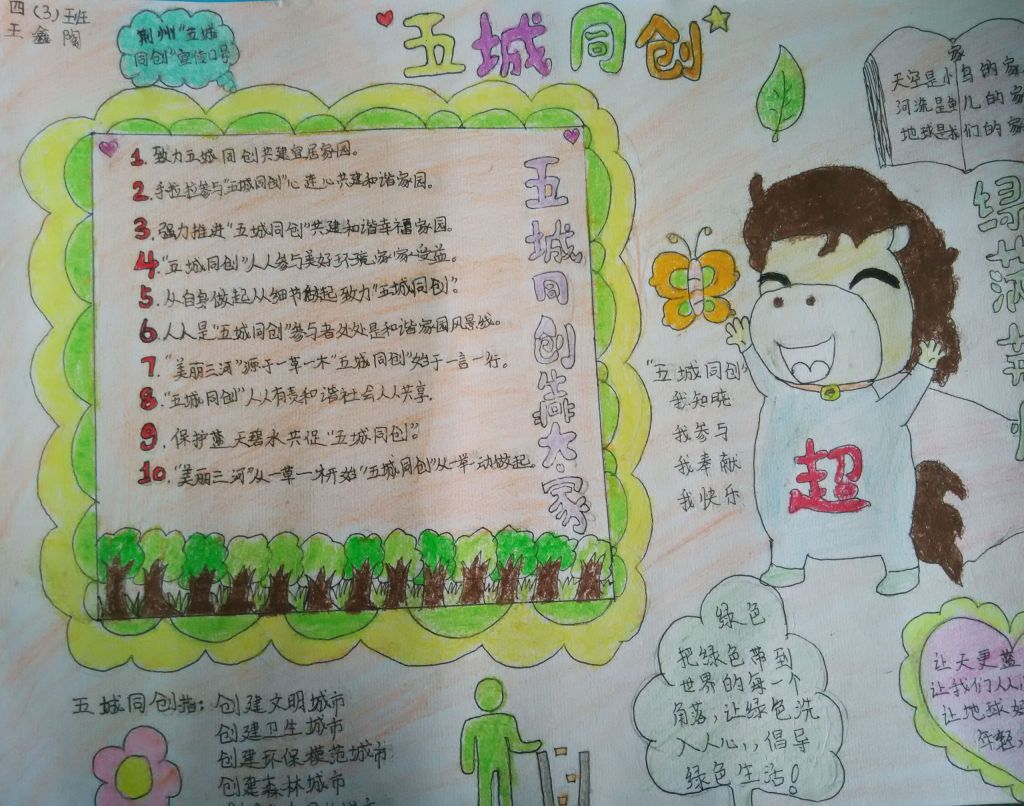 四(3)班
王鑫陶
荆州"五城
同创"宣传口号
五城同创
家
天空是小鸟的家
河流是鱼儿的家
地球是我们的家
1.致力五城同创共建宜居家园。
2.手拉拉参与"五城同创"心连心共建和谐家园。
3.强力推进"五城同创"共建和谐幸福家园。
4."五城同创"人人参与美好环境家家受益。
5.从自身做起从细节做起致力"五城同创"。
6.人人是"五城同创"参与者处处是和谐家园风景线。
7."美丽三河"源于一草一木"五城同创"始于一言一行。
8."五城同创"人人有责和谐社会人人共享。
9.保护蓝天碧水共促"五城同创"。
10."美丽三河"从一草一木开始"五城同创"从一举一动做起。
五城同创靠大家
"五城同创"
我知晓
我参与
我奉献
我快乐
超
绿
绿色
把绿色带到
世界的每一个
角落,让绿色洗
入人心,,倡导
绿色生活!
让天更蓝
让我们人人
让地球
年轻
五城同创指:创建文明城市
创建卫生城市
创建环保模范城市
创建森林城市